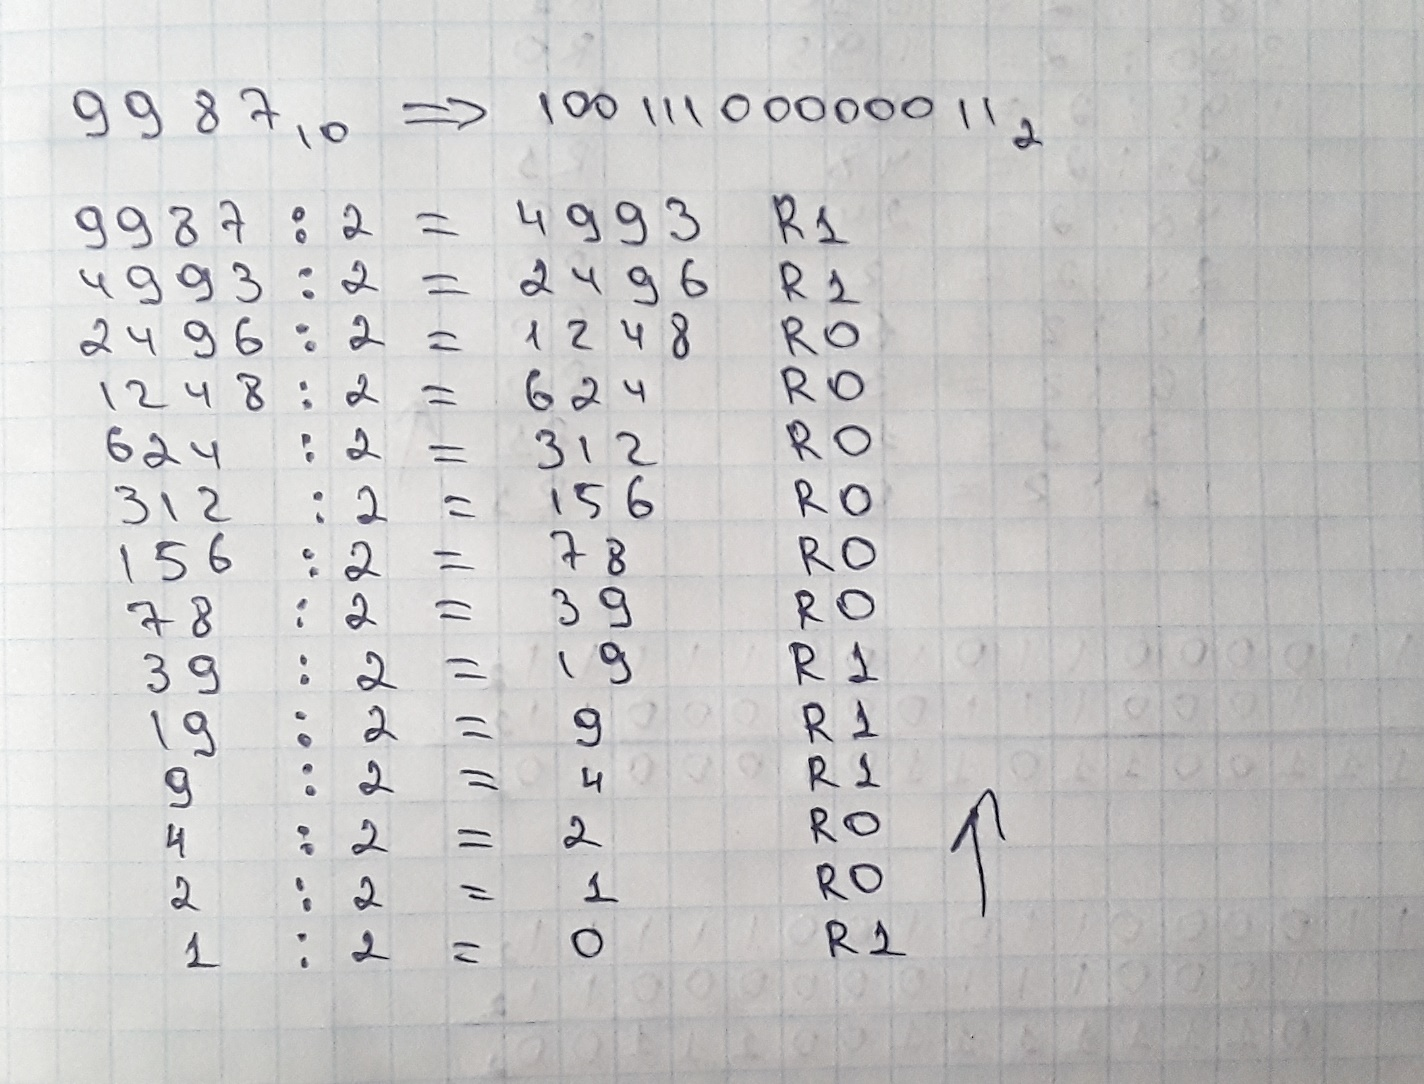 9987₁₀ ⇒ 10011100000011₂
9987 : 2 = 4993 R1
4993 : 2 = 2496 R1
2496 : 2 = 1248 R0
1248 : 2 = 624 R0
624 : 2 = 312 R0
312 : 2 = 156 R0
156 : 2 = 78 R0
78 : 2 = 39 R0
39 : 2 = 19 R1
19 : 2 = 9 R1
9 : 2 = 4 R1
4 : 2 = 2 R0
2 : 2 = 1 R0
1 : 2 = 0 R1